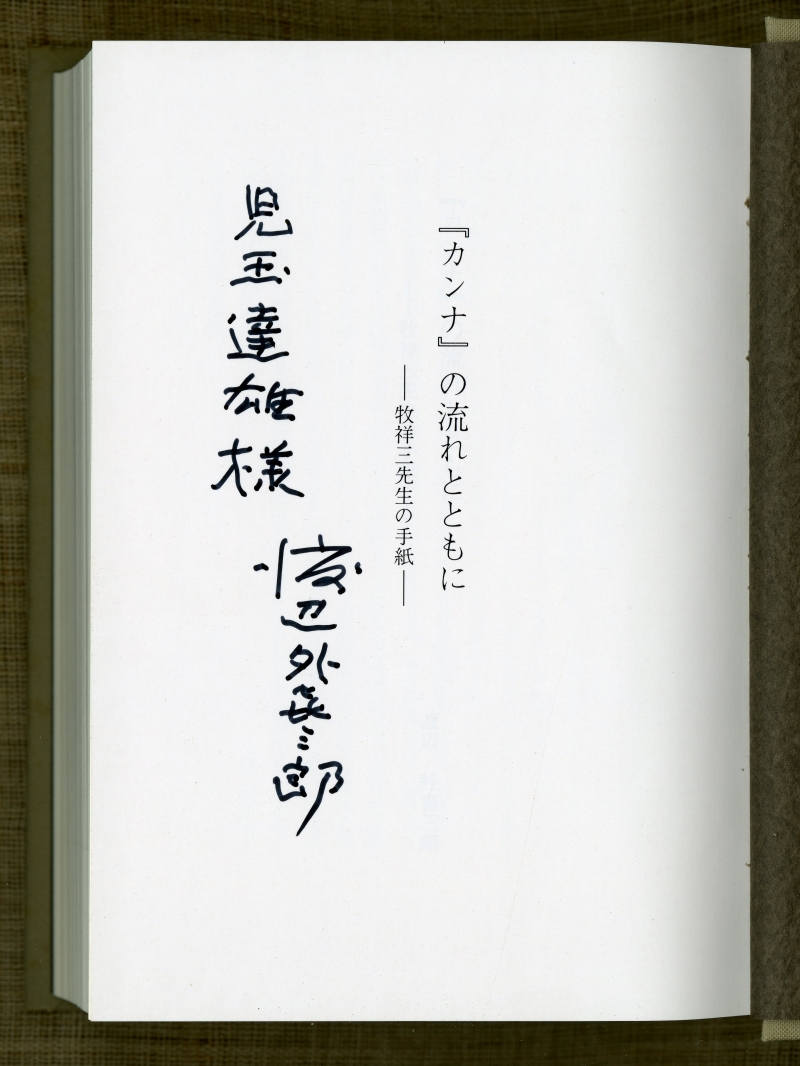 『カンナ』の流れとともに
―牧祥三先生の手紙―
児玉達雄様
渡辺外喜三郎